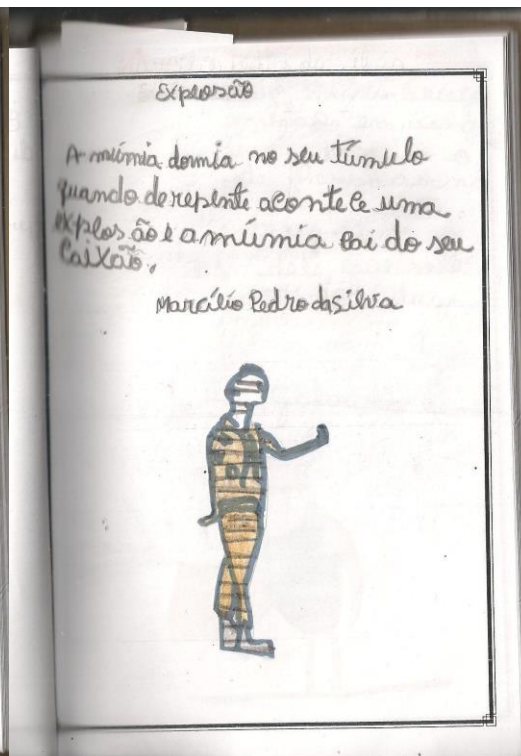 Explosão
A múmia dormia no seu túmulo
quando derepente acontece uma
explosão e a múmia cai do seu
caixão.
Marcílio Pedro da silva